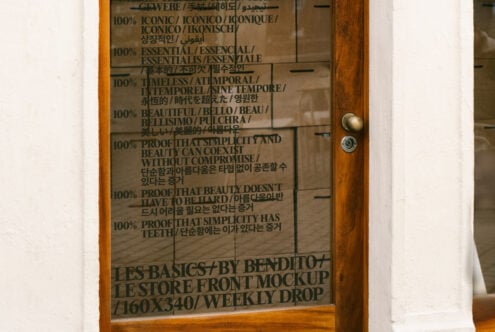 100% ICONIC / ICÓNICO / ICONIQUE /
ICONICO / IKONISCH /
상징적인 / أيقوني
100% ESSENTIAL / ESSENCIAL /
ESSENTIALIS / ESSENZIALE
/ 基本的 / 不可欠 / 필수적인
100% TIMELESS / ATEMPORAL /
INTEMPOREL / SINE TEMPORE /
永恆的 / 時代を超えた / 영원한
100% BEAUTIFUL / BELLO / BEAU /
BELLISIMO / PULCHRA /
美しい / 美麗的 / 아름다운
100% PROOF THAT SIMPLICITY AND
BEAUTY CAN COEXIST
WITHOUT COMPROMISE /
단순함과 아름다움은 타협 없이 공존할 수
있다는 증거
100% PROOF THAT BEAUTY DOESN'T
HAVE TO BE HARD / 아름다움이 반
드시 어려울 필요는 없다는 증거
100% PROOF THAT SIMPLICITY HAS
TEETH / 단순함에는 이가 있다는 증거
LES BASICS / BY BENDITO /
LE STORE FRONT MOCKUP
/ 160X340 / WEEKLY DROP